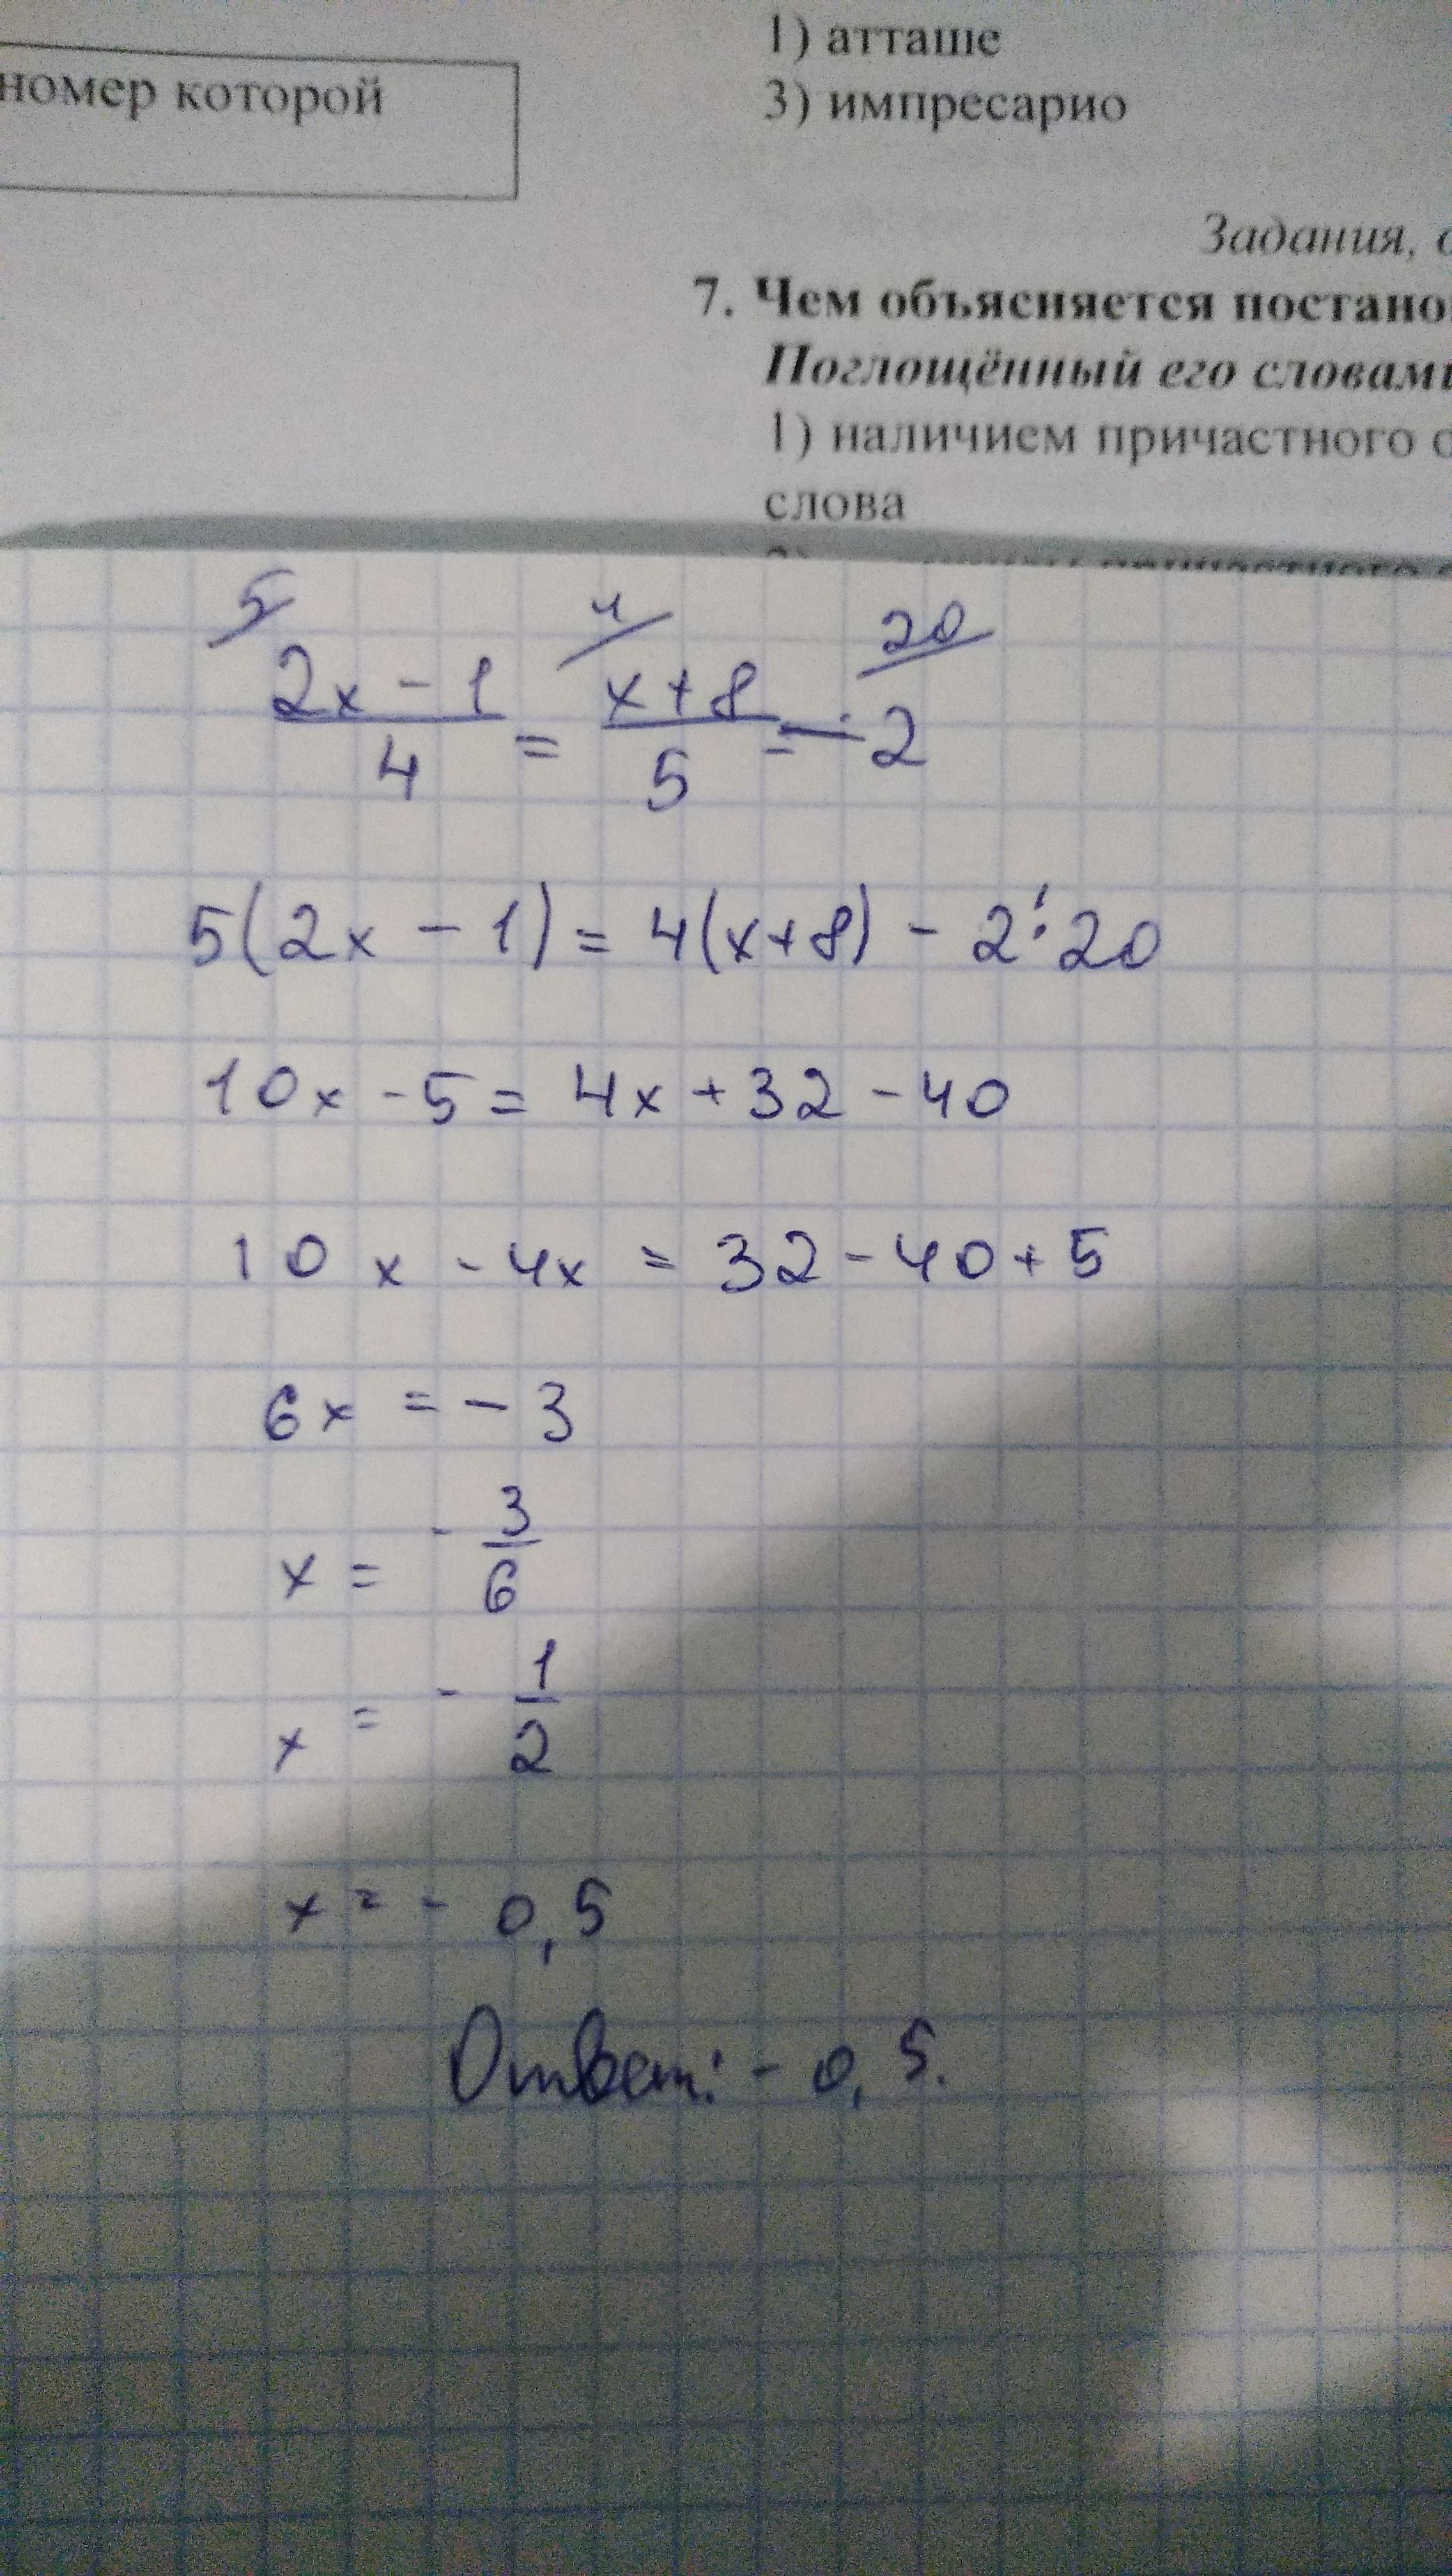 номер которой
1) атташе
3) импресарио
Задания,
7. Чем объясняется
Поглощённый его словами
1) наличием причастного
слова
5 4 20
2x - 1 / 4 = x + 8 / 5 = - 2
5(2x - 1) = 4(x+8) - 2 : 20
10x - 5 = 4x + 32 - 40
10x - 4x = 32 - 40 + 5
6x = - 3
x = - 3/6
x = - 1/2
x = - 0,5
Ответ: - 0,5.